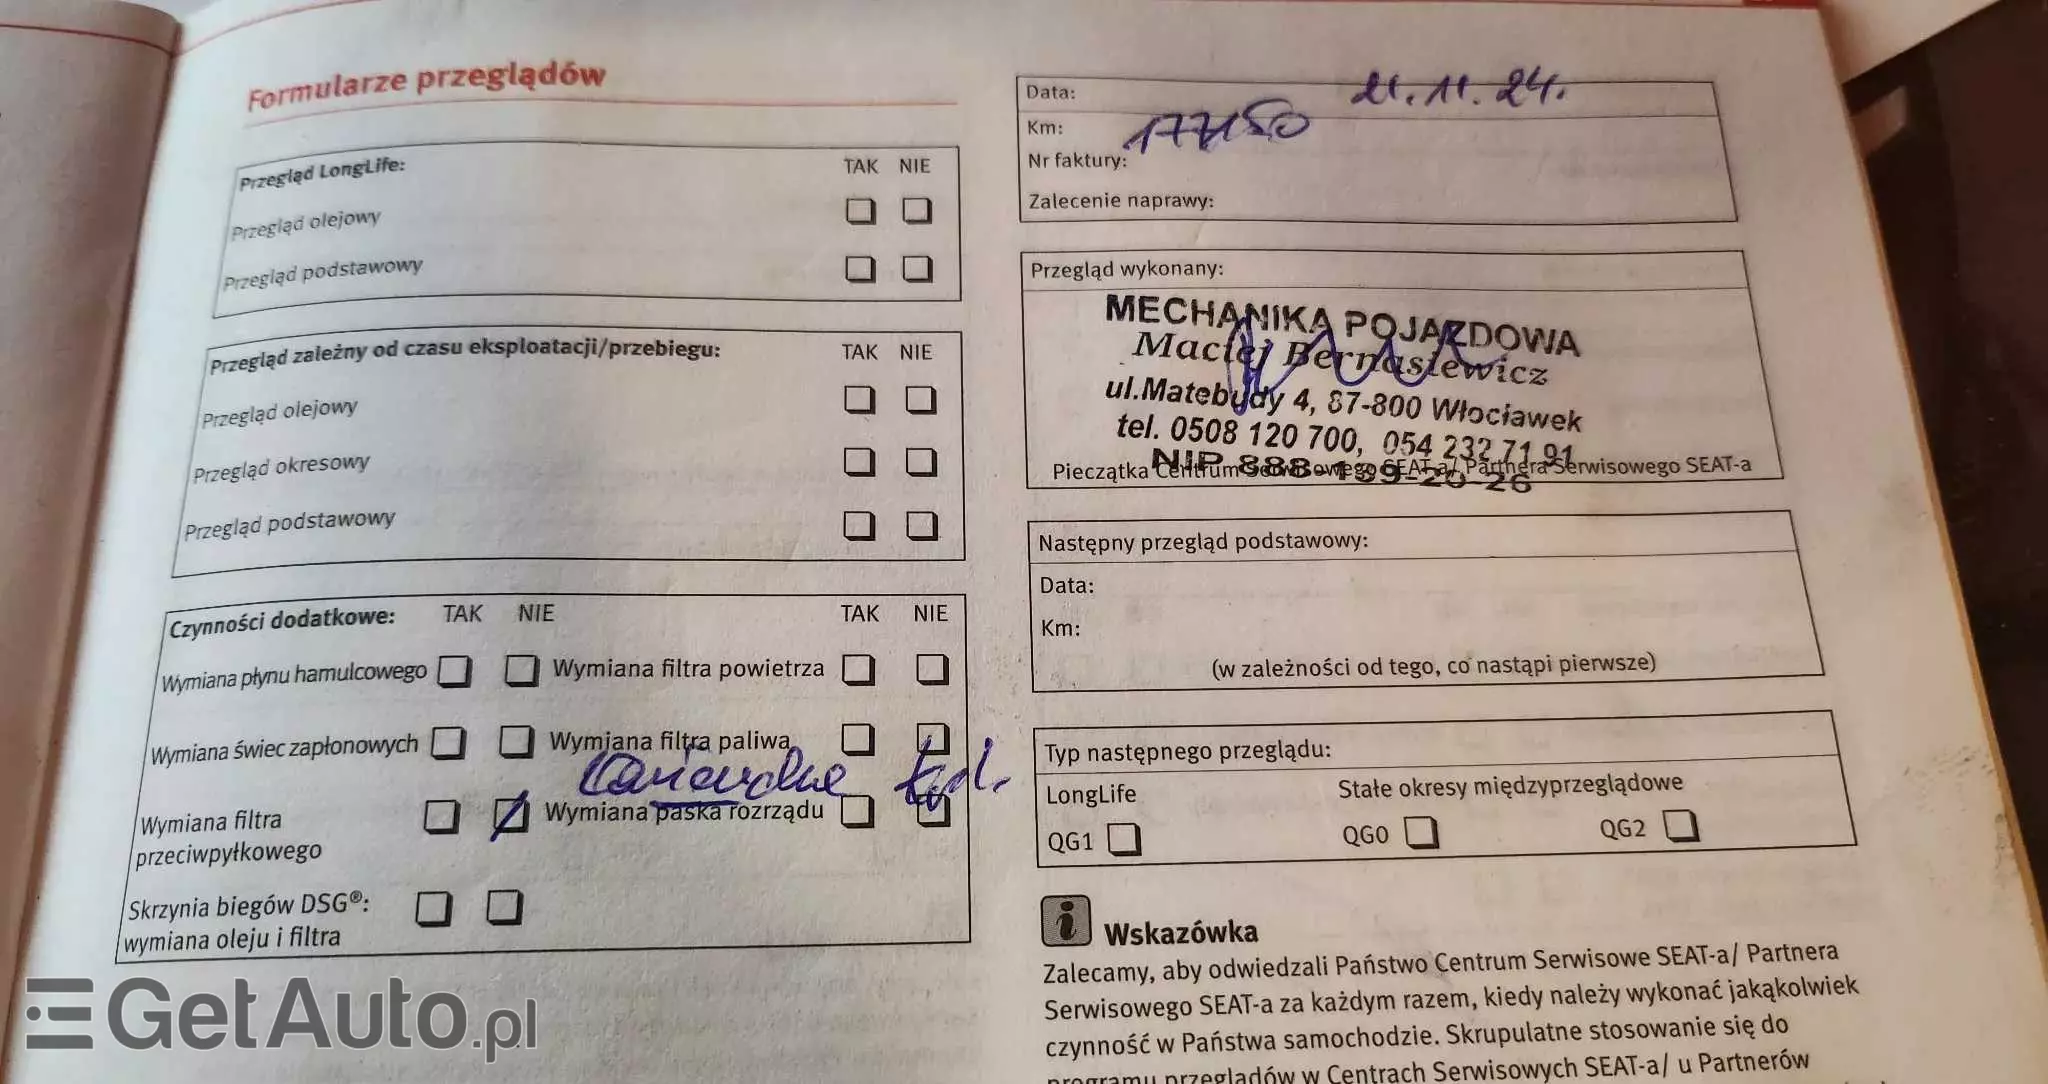 Formularze przeglądów
Przegląd LongLife: TAK NIE
Przegląd olejowy
Przegląd podstawowy
Przegląd zależny od czasu eksploatacji/przebiegu: TAK NIE
Przegląd olejowy
Przegląd okresowy
Przegląd podstawowy
Czynności dodatkowe: TAK NIE TAK NIE
Wymiana płynu hamulcowego Wymiana filtra powietrza
Wymiana świec zapłonowych Wymiana filtra paliwa
Wymiana filtra przeciwpyłkowego Wymiana paska rozrządu
Skrzynia biegów DSG®:
wymiana oleju i filtra
Data: 21.11.24.
Km: 177150
Nr faktury:
Zalecenie naprawy:
Przegląd wykonany:
MECHANIKA POJAZDOWA
Maciej Bernasiewicz
ul.Matebudy 4, 87-800 Włocławek
tel. 0508 120 700, 054 232 71 91
NIP 888-159-20-26
Pieczątka Centrum Serwisowego SEAT-a/ Partnera Serwisowego SEAT-a
Następny przegląd podstawowy:
Data:
Km:
(w zależności od tego, co nastąpi pierwsze)
Typ następnego przeglądu:
LongLife Stałe okresy międzyprzeglądowe
QG1 QG0 QG2
i Wskazówka
Zalecamy, aby odwiedzali Państwo Centrum Serwisowe SEAT-a/ Partnera
Serwisowego SEAT-a za każdym razem, kiedy należy wykonać jakąkolwiek
czynność w Państwa samochodzie. Skrupulatne stosowanie się do
programu przeglądów w Centrach Serwisowych SEAT-a/ u Partnerów
GetAuto.pl